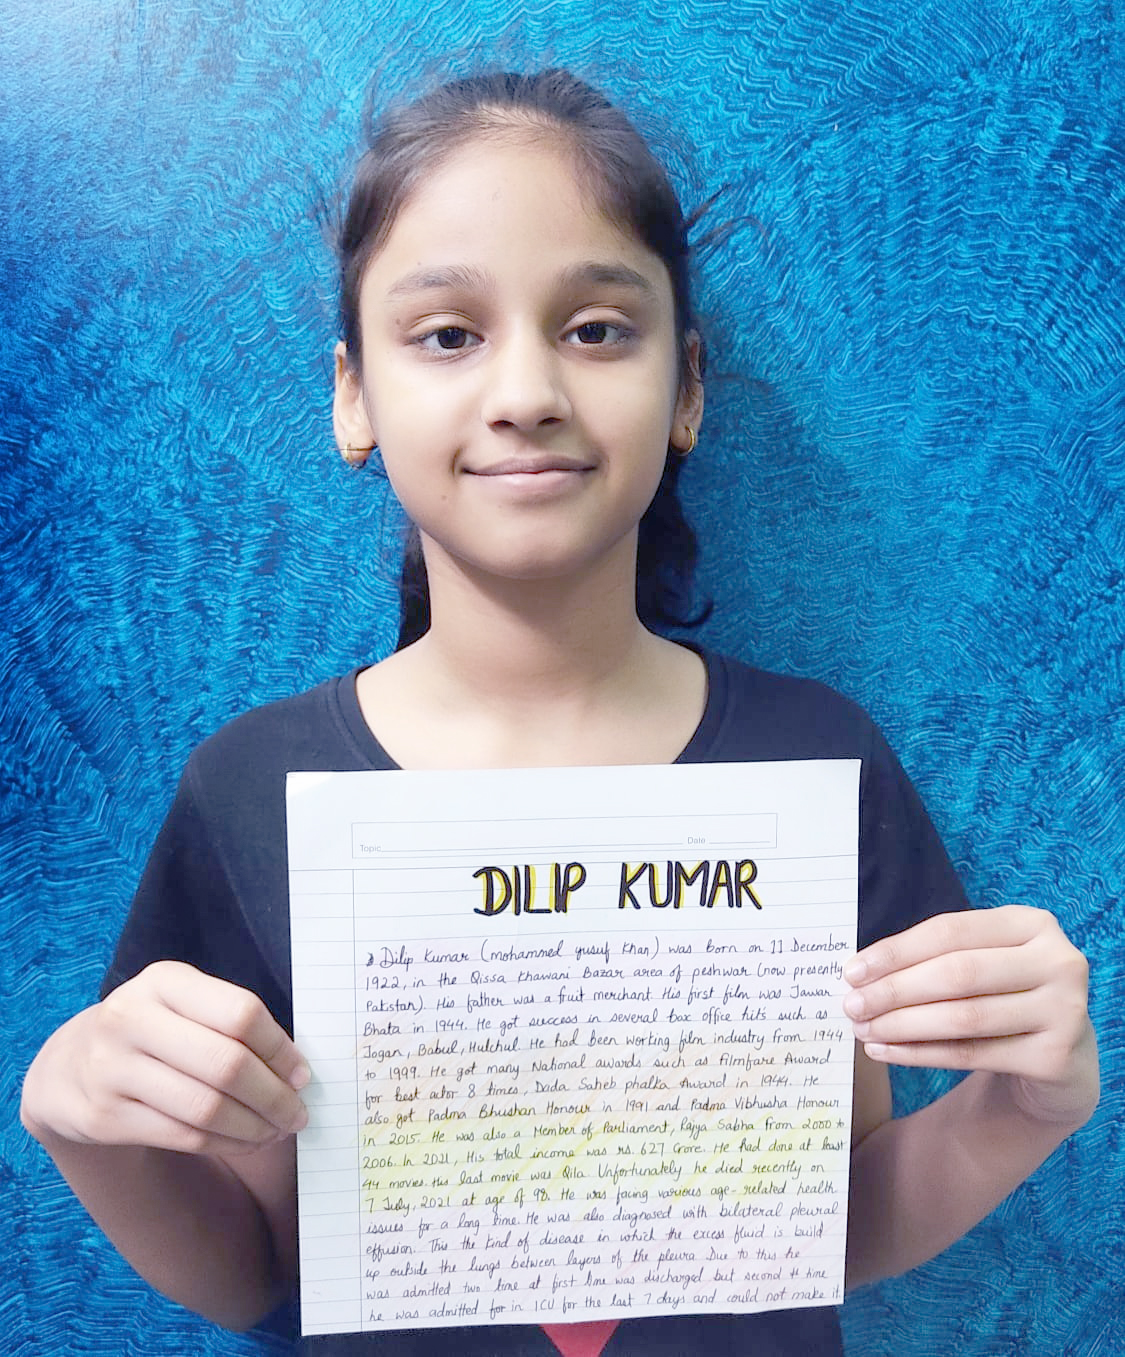 Topic
Date
DILIP KUMAR
Dilip Kumar (mohammed yusuf Khan) was born on 11 December
1922, in the Qissa Khawani Bazar area of peshwar (now presently
Pakistan). His father was a fruit merchant. His first film was Jawar
Bhata in 1944. He got success in several box office hits such as
Jogan, Babul, Hulchul. He had been working film industry from 1944
to 1999. He got many National awards such as filmfare Award
for best actor 8 times, Dada Saheb phalka Award in 1944. He
also got Padma Bhushan Honour in 1991 and Padma Vibhusha Honour
in 2015. He was also a Member of Parliament, Rajya Sabha from 2000 to
2006. In 2021, His total income was rs. 627 Crore. He had done at least
44 movies. His last movie was Qila. Unfortunately he died recently on
7 July, 2021 at age of 98. He was facing various age-related health
issues for a long time. He was also diagnosed with bilateral pleural
effusion. This the kind of disease in which the excess fluid is build
up outside the lungs between layers of the pleura Due to this he
was admitted two time at first time was discharged but second time
he was admitted for in ICU for the last 7 days and could not make it.